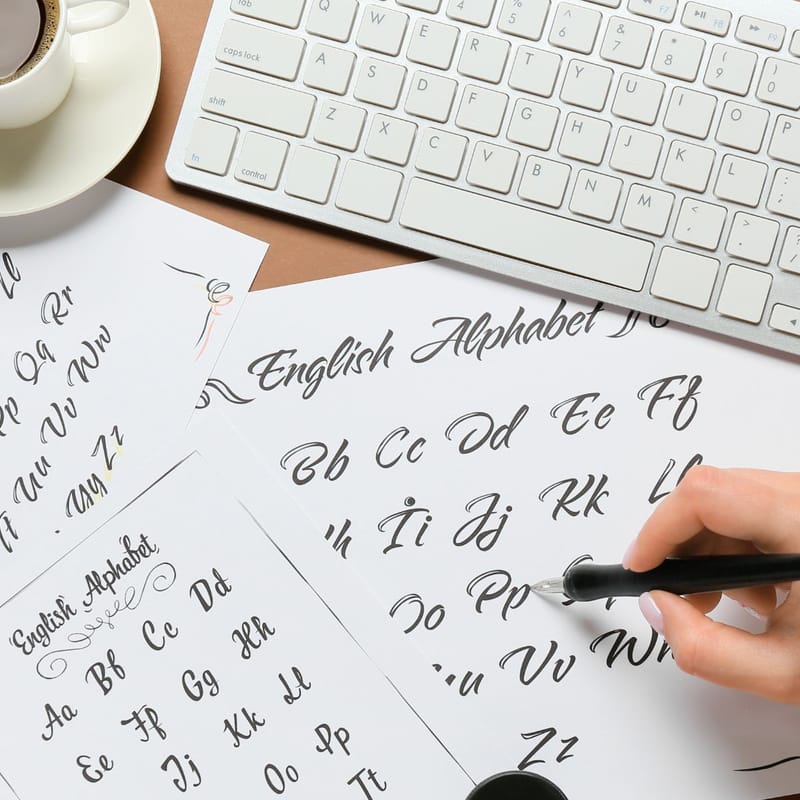 tab Q W E R T Y U I O P
caps lock A S D F G H J K L
shift Z X C V B N M
fn control
Rr
Qq Ww
Pp Vv
Uu Zz
Tt Yy
English Alphabet
Bb Cc Dd Ee Ff
Ii Jj Kk
Oo Pp
Vv
Zz
English Alphabet
Aa Bb Cc Dd
Ee Ff Gg Hh
Ij Kk Ll
Oo Pp
Tt